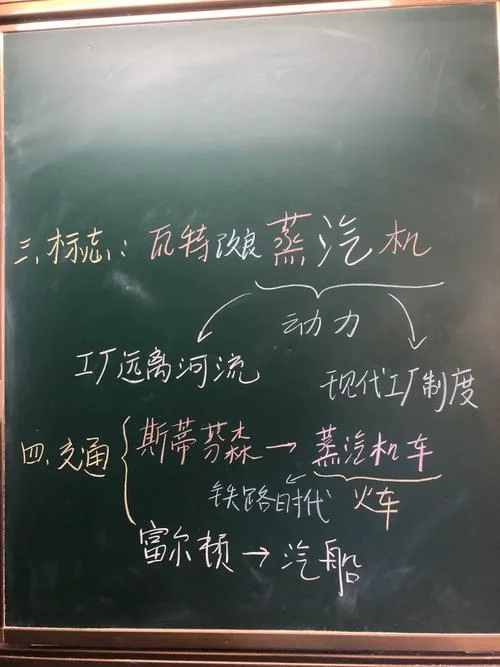 三、标志：瓦特改良蒸汽机
动力
工厂远离河流
现代工厂制度
四、交通
斯蒂芬森→蒸汽机车
铁路时代
火车
富尔顿→汽船